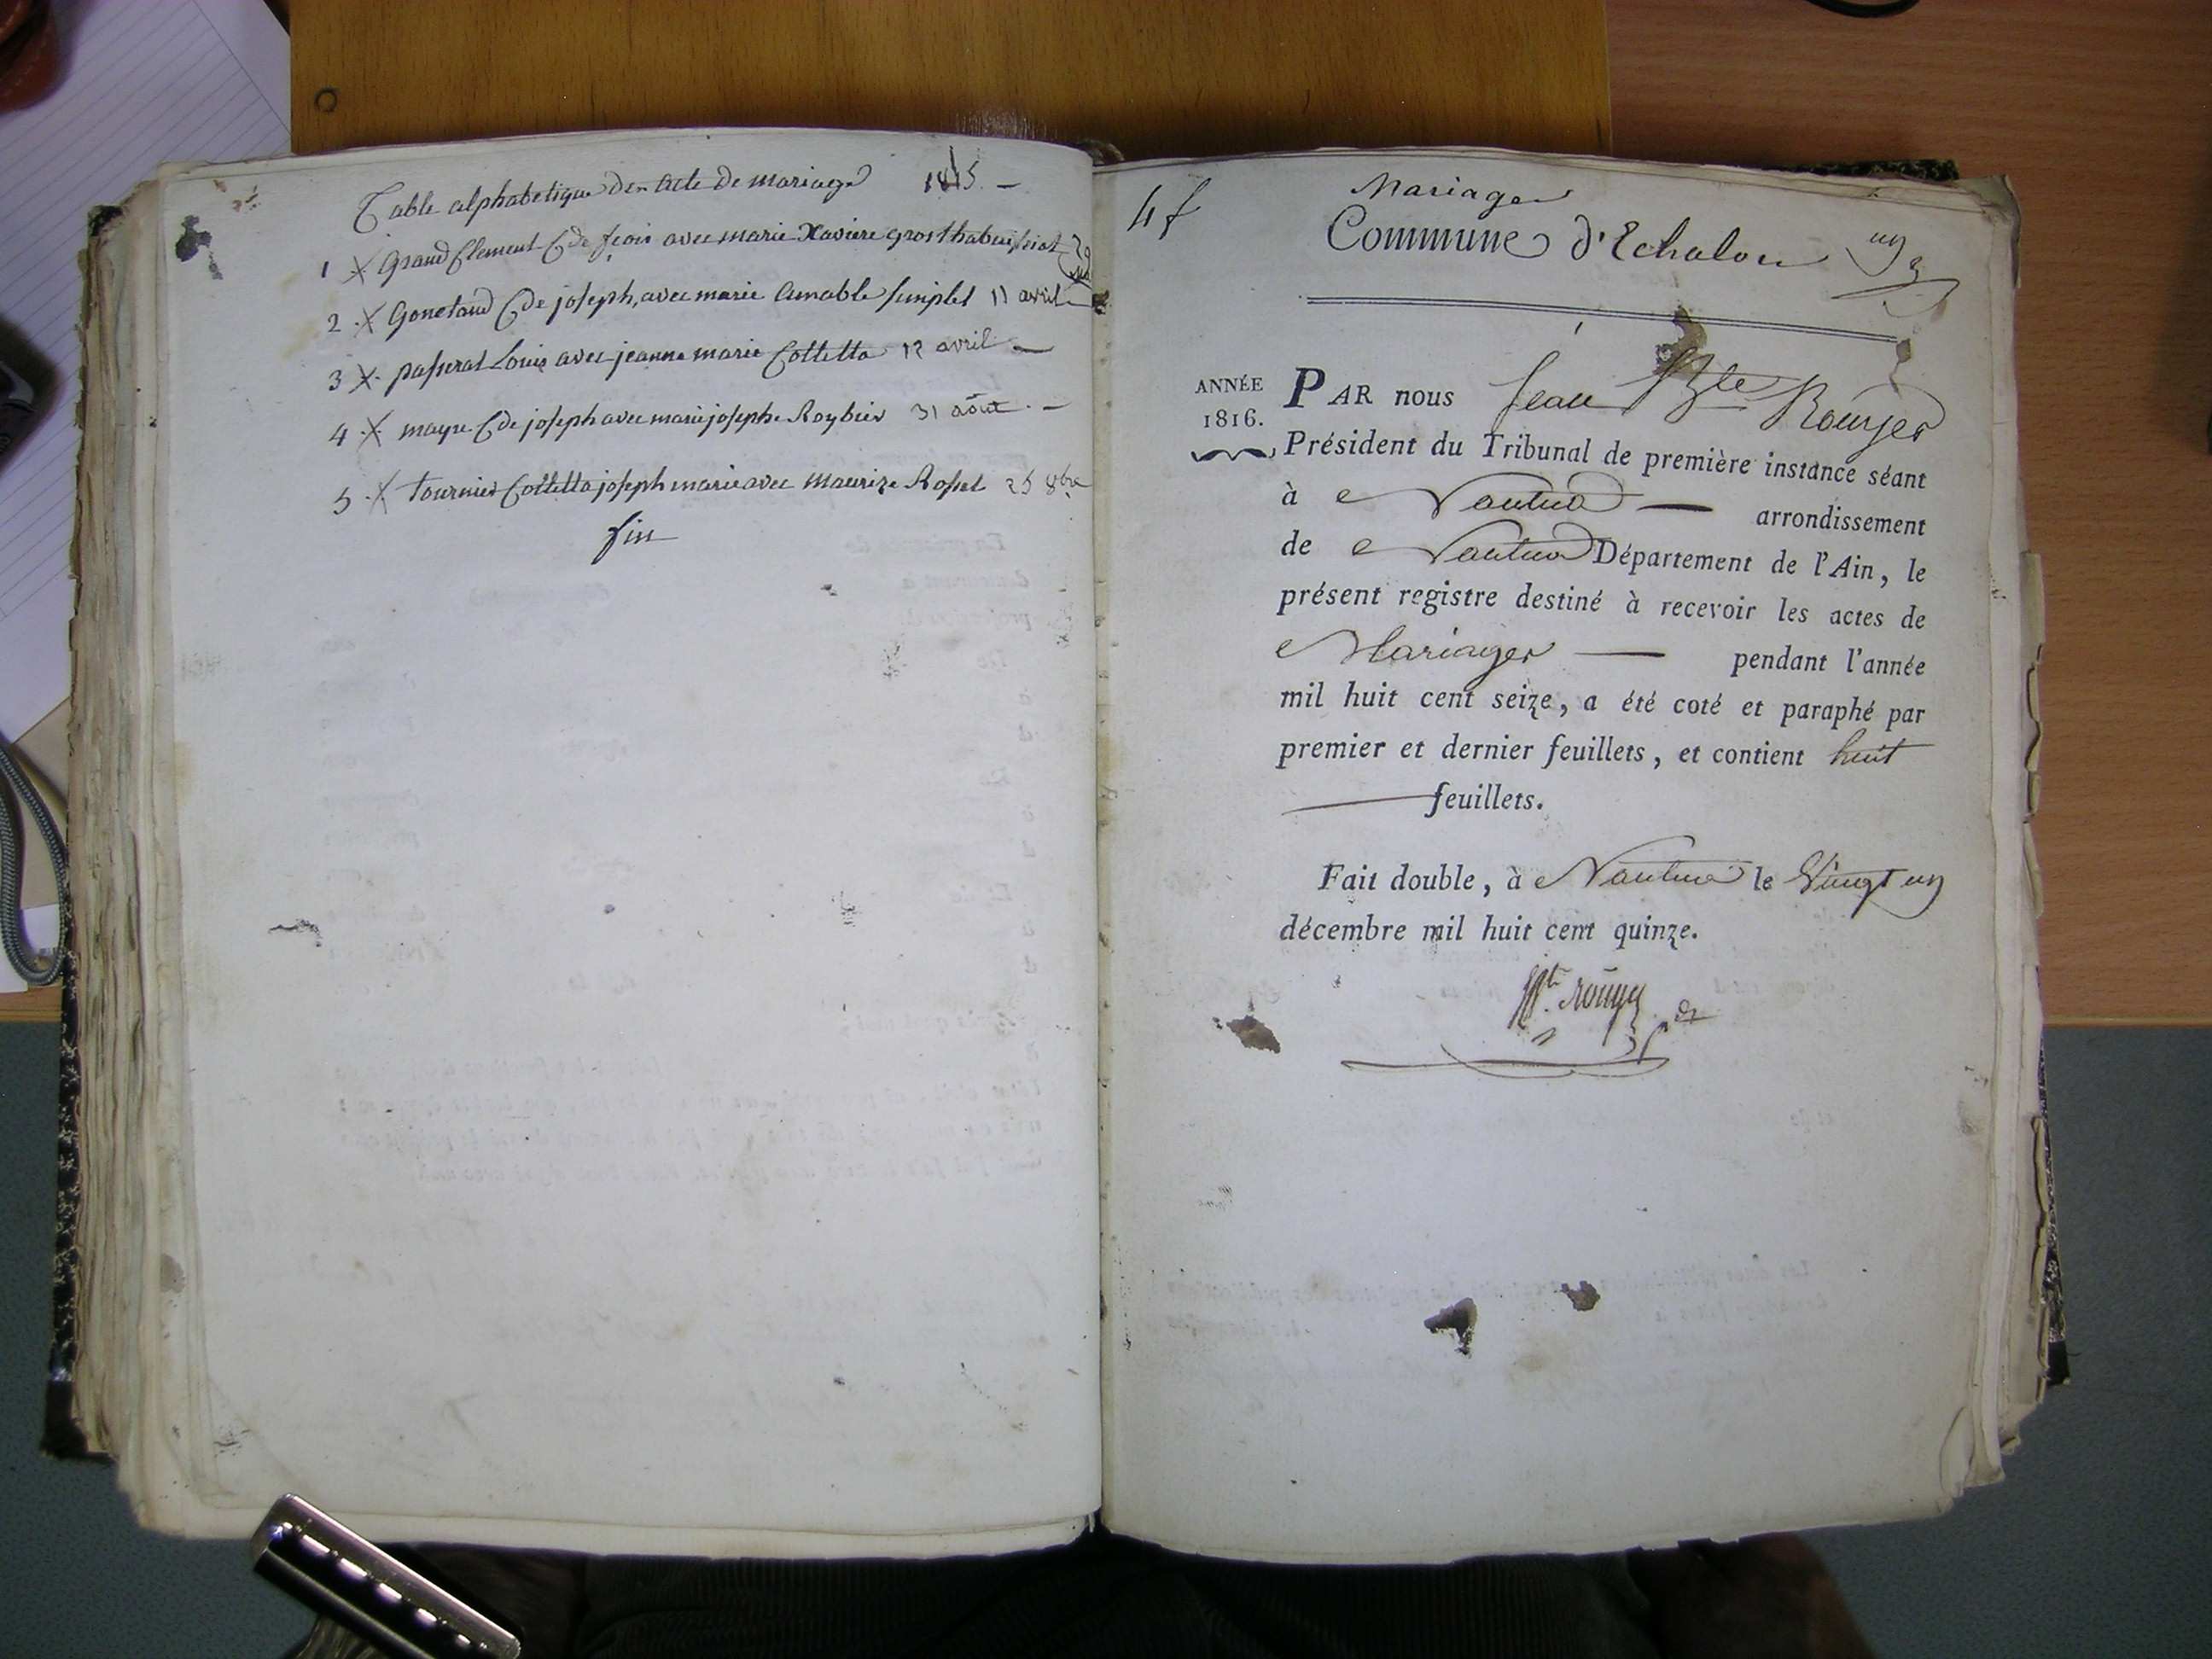 Table alphabetique des Acte de mariage 1815. —
1 X Grand Clement Cde fçois avec marie Xaviere grosthabussiat 29
2 X Gonetand Cde joseph, avec marie Aimable humplet 11 avril
3 X passerat Louis avec jeanne marie Colletta 12 avril —
4 X mayre Cde joseph avec marie josephe Roybier 31 août. —
5 X tournier Colletta joseph marie avec Maurize Rosset 25 8bre
fin
4 f
Mariages
Commune d'Echalon
un
ANNÉE
1816.
PAR nous Jean Bte Rouyer
Président du Tribunal de première instance séant
à Nantua — arrondissement
de Nantua Département de l'Ain, le
présent registre destiné à recevoir les actes de
Mariages — pendant l'année
mil huit cent seize, a été coté et paraphé par
premier et dernier feuillets, et contient huit
— feuillets.
Fait double, à Nantua le Vingt un
décembre mil huit cent quinze.
Bte. rouyer